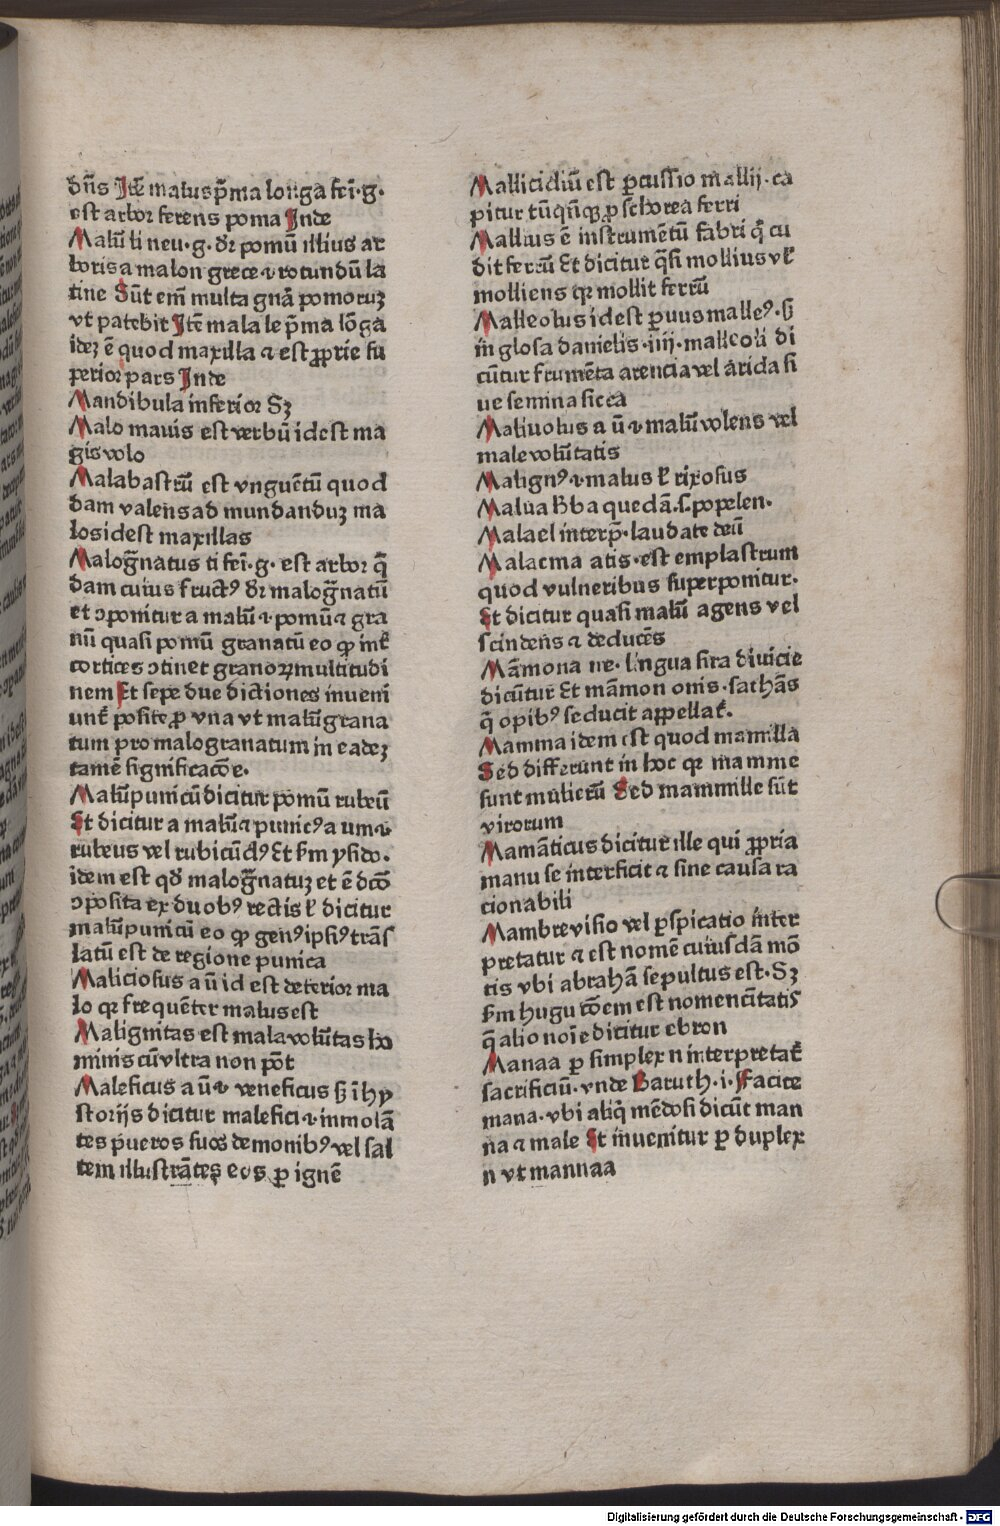 dn̄s Itē malus p̄ma longa fei·g·
est arbor ferens poma Inde
Malū li neu·g· dr̄ pomū illius ar
boris a malon grece ⁊ rotundū la
tine Sūt em̄ multa gn̄a pomoruꝫ
vt patebit Itē mala le p̄ma lōga
ideꝫ ē quod maxilla ⁊ est ꝓprie su
perior pars Inde
Mandibula inferior Sꝫ
Malo mauis est verbū idest ma
gis volo
Malabastrū est vnguētū quod
dam valens ad mundanduꝫ ma
los idest maxillas
Malogr̄natus ti fei·g· est arbor q̄
dam cuius fructꝰ dr̄ malogr̄natū
et ↄponitur a malū ⁊ pomū ⁊ gra
nū quasi pomū granatū eo ꝙ int̄
cortices ↄtinet granoꝝ multitudi
nem Et sepe due dictiones inueni
unt̄ posite ꝓ vna vt malūgrana
tum pro malogranatum in eadeꝫ
tamē significacōe·
Malūpunicū dicitur pomū rubeū
Et dicitur a malū ⁊ punicꝰ a um ⁊
rubeus vel rubicūdꝰ Et sm̄ ysido·
idem est qd̄ malogr̄natuꝫ et ē dcō
ↄposita ex duobꝰ rectis ł dicitur
malūpunicū eo ꝙ genꝰ ipsiꝰ trās
latū est de regione punica
Maliciosus a ū id est deterior ma
lo qꝛ frequēter malus est
Malignitas est mala volūtas ho
minis cū vltra non pōt
Maleficus a ū ⁊ veneficus sꝫ ī hy
storijs dicitur malefici ⁊ inmolā
tes pueros suos demonibꝰ vel sal
tem illustrātes eos ꝑ ignē
Mallicidiū est ꝑcussio mallij·ca
pitur tū qn̄qꝫ ꝓ schorea ferri
Malleus ē instrumētū fabri q̄ cu
dit ferrū Et dicitur q̄si mollius vł
molliens qꝛ mollit ferrū
Malleolus idest ꝑuus malleꝰ·sꝫ
in glosa danielis·iiij·malleoli di
cūtur frumēta arencia vel arida si
ue semina sicca
Maliuolus a ū ⁊ malū volens vel
male volūtatis
Malignꝰ ⁊ malus ł rixosus
Malua hr̄ba quedā·s·popelen·
Malael interp̄·laudate deū
Malacma atis·est emplastrum
quod vulneribus superponitur·
Et dicitur quasi malū agens vel
scindens ⁊ deducēs
Māmona ne·lingua sira diuicie
dicūtur Et māmon onis·sathās
q̄ opibꝰ seducit appellat̄·
Mamma idem est quod mamilla
Sed differunt in hoc qꝛ mamme
sunt mulierū Sed mammille sūt
virorum
Mamāticus dicitur ille qui ꝓpria
manu se interficit ⁊ sine causa ra
cionabili
Mambre visio vel ꝑspicatio inter
pretatur ⁊ est nomē cuiusdā mō
tis vbi abrahā sepultus est·Sꝫ
sm̄ hugucōem est nomen cītatis
q̄ alio noīe dicitur ebron
Manaa ꝑ simplex n interpretat̄
sacrificiū·vnde Baruth·i·Facite
mana·vbi aliq̄ mēdosi dicūt man
na ⁊ male Et inuenitur ꝑ duplex
n vt mannaa
Digitalisierung gefördert durch die Deutsche Forschungsgemeinschaft · DFG